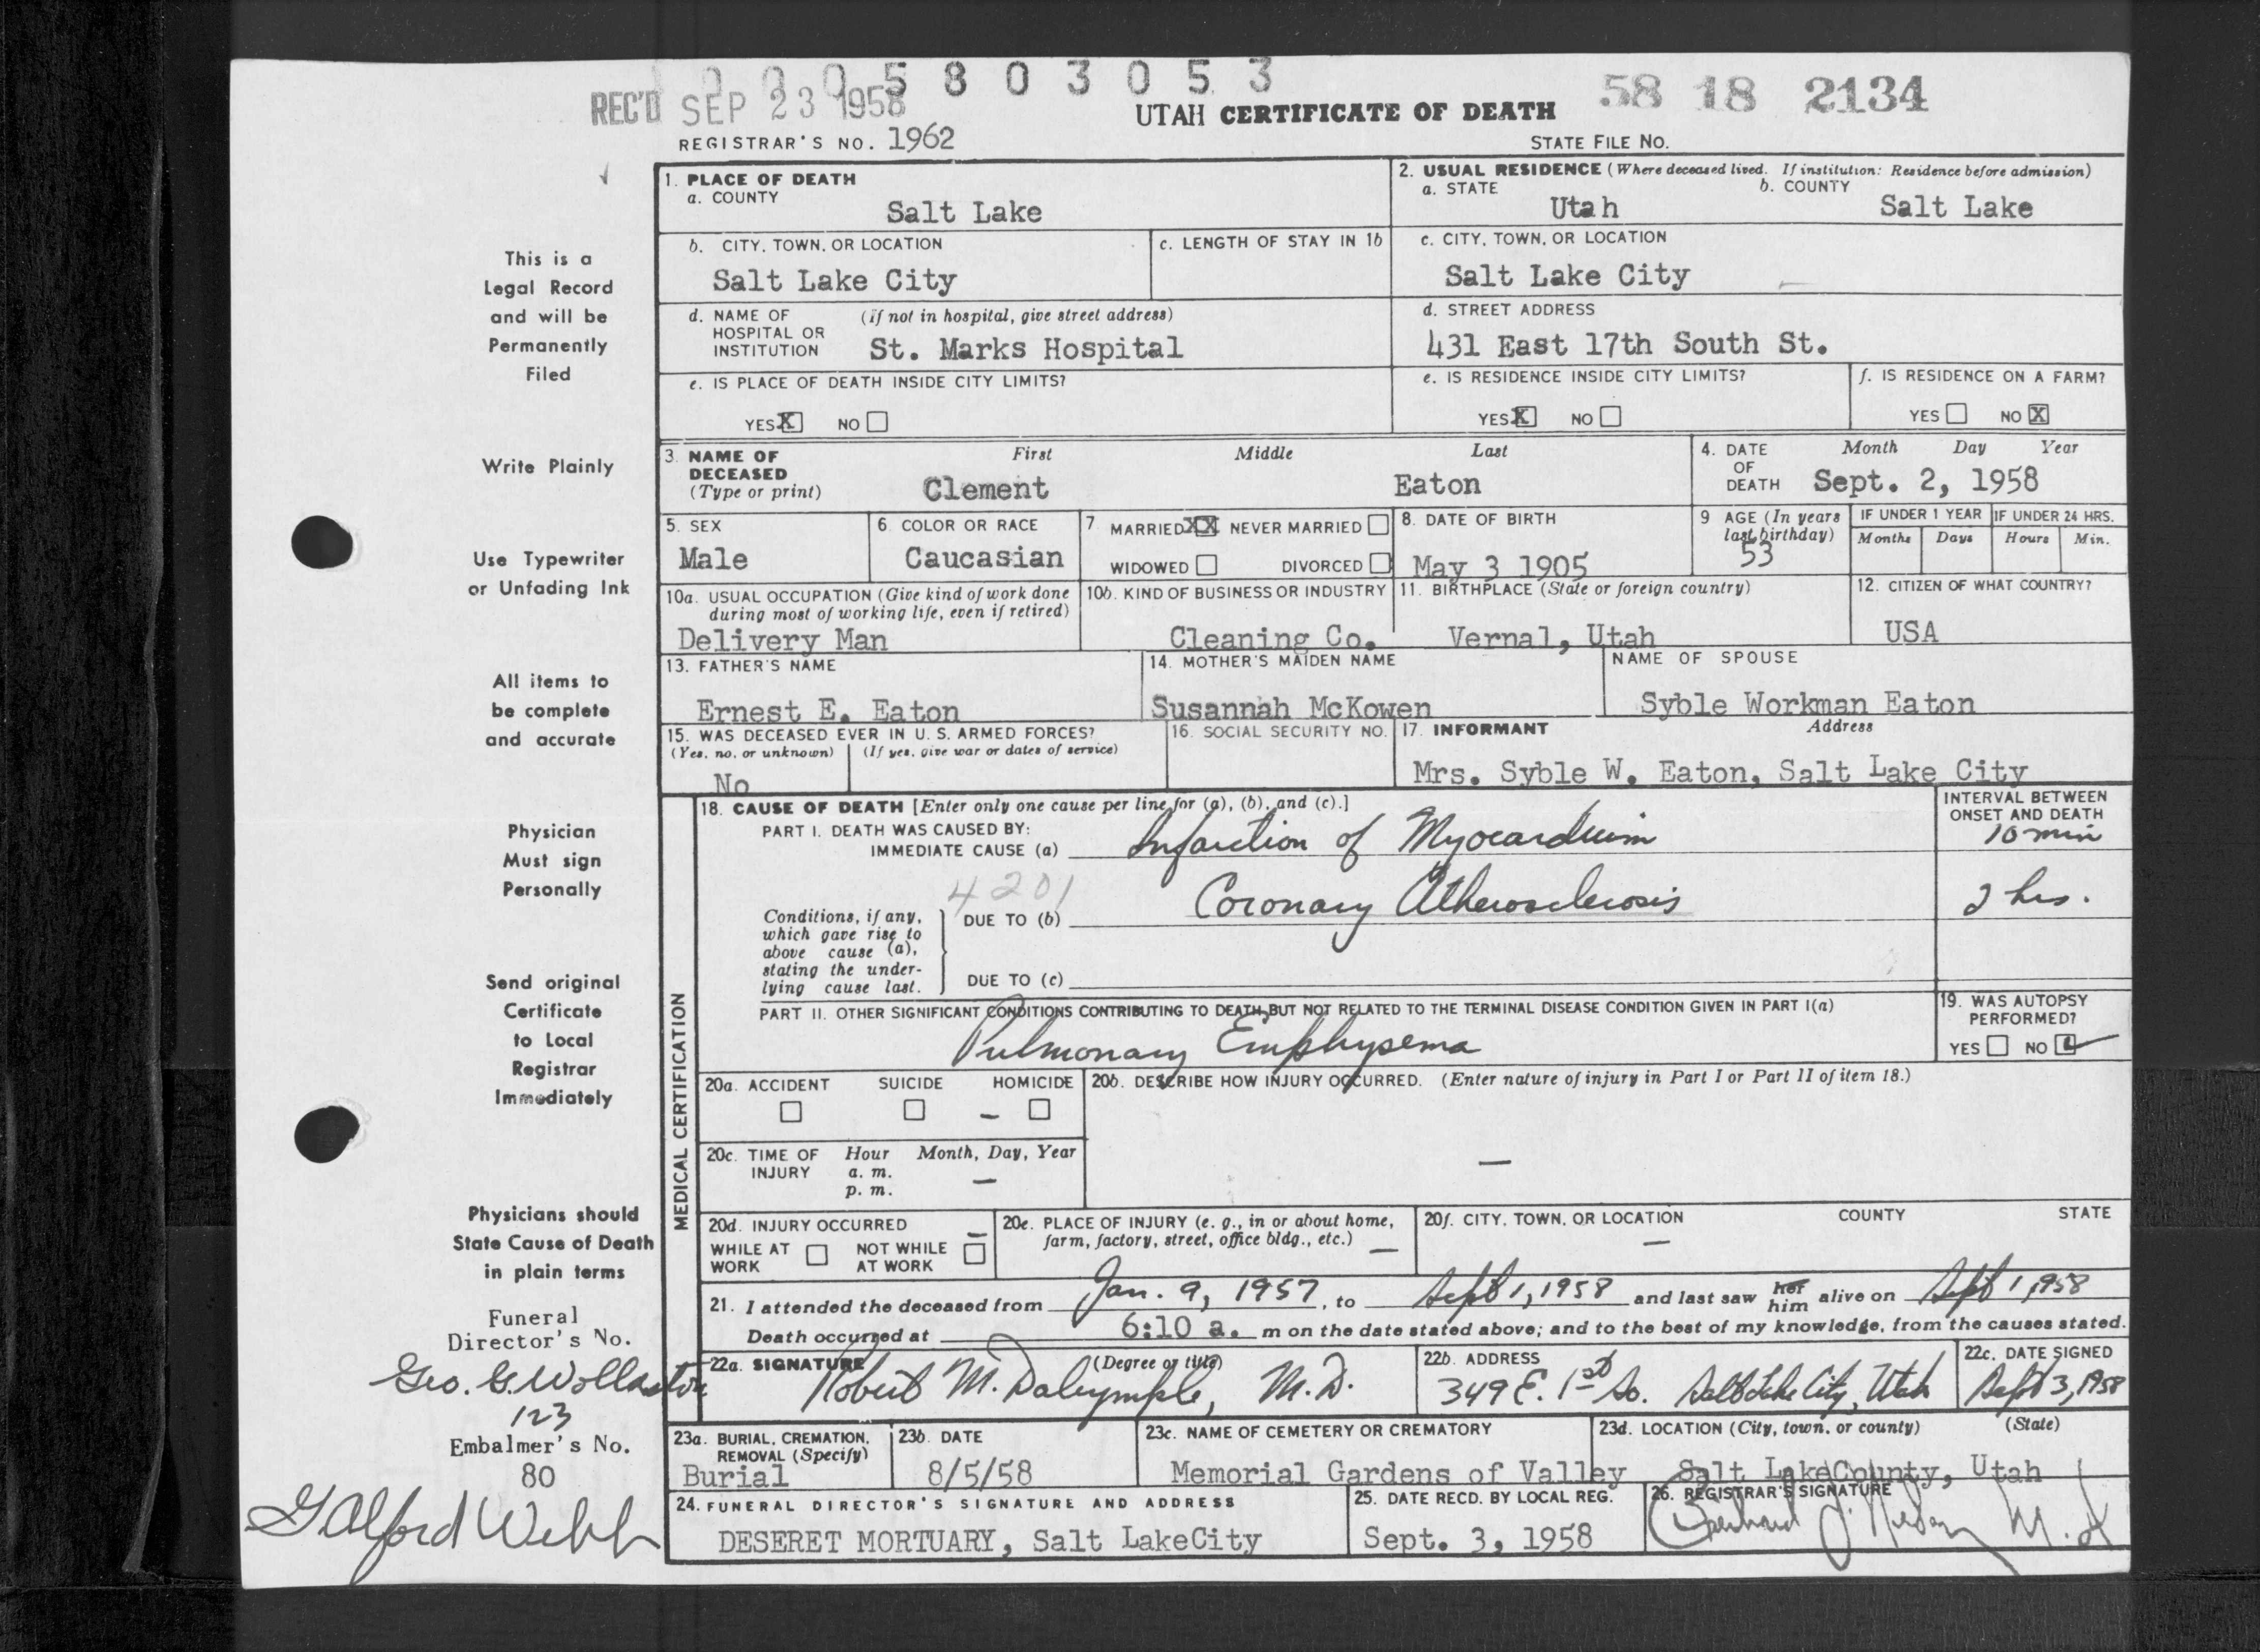 0005803053
REC'D SEP 23 1958
58 18 2134
UTAH CERTIFICATE OF DEATH
REGISTRAR'S NO. 1962
STATE FILE NO.
This is a
Legal Record
and will be
Permanently
Filed
Write Plainly
Use Typewriter
or Unfading Ink
All items to
be complete
and accurate
Physician
Must sign
Personally
Send original
Certificate
to Local
Registrar
Immediately
Physicians should
State Cause of Death
in plain terms
Funeral
Director's No.
Geo. G. Wollaston
123
Embalmer's No.
80
G Alford Webb
1. PLACE OF DEATH
a. COUNTY
Salt Lake
2. USUAL RESIDENCE (Where deceased lived. If institution: Residence before admission)
a. STATE b. COUNTY
Utah Salt Lake
b. CITY, TOWN, OR LOCATION
Salt Lake City
c. LENGTH OF STAY IN 1b
c. CITY, TOWN, OR LOCATION
Salt Lake City
d. NAME OF (If not in hospital, give street address)
HOSPITAL OR
INSTITUTION St. Marks Hospital
d. STREET ADDRESS
431 East 17th South St.
e. IS PLACE OF DEATH INSIDE CITY LIMITS?
YES X NO
e. IS RESIDENCE INSIDE CITY LIMITS?
YES X NO
f. IS RESIDENCE ON A FARM?
YES NO X
3. NAME OF First Middle Last
DECEASED
(Type or print) Clement Eaton
4. DATE Month Day Year
OF
DEATH Sept. 2, 1958
5. SEX
Male
6. COLOR OR RACE
Caucasian
7. MARRIED XX NEVER MARRIED
WIDOWED DIVORCED
8. DATE OF BIRTH
May 3 1905
9 AGE (In years
last birthday)
53
IF UNDER 1 YEAR
Months Days
IF UNDER 24 HRS.
Hours Min.
10a. USUAL OCCUPATION (Give kind of work done
during most of working life, even if retired)
Delivery Man
10b. KIND OF BUSINESS OR INDUSTRY
Cleaning Co.
11. BIRTHPLACE (State or foreign country)
Vernal, Utah
12. CITIZEN OF WHAT COUNTRY?
USA
13. FATHER'S NAME
Ernest E. Eaton
14. MOTHER'S MAIDEN NAME
Susannah McKowen
NAME OF SPOUSE
Syble Workman Eaton
15. WAS DECEASED EVER IN U. S. ARMED FORCES?
(Yes, no, or unknown) (If yes, give war or dates of service)
No
16. SOCIAL SECURITY NO.
17. INFORMANT Address
Mrs. Syble W. Eaton, Salt Lake City
MEDICAL CERTIFICATION
18. CAUSE OF DEATH [Enter only one cause per line for (a), (b), and (c).]
INTERVAL BETWEEN
ONSET AND DEATH
PART I. DEATH WAS CAUSED BY:
IMMEDIATE CAUSE (a) Infarction of Myocardium 10 min
4201
Conditions, if any,
which gave rise to
above cause (a),
stating the under-
lying cause last.
DUE TO (b) Coronary Atherosclerosis 2 hrs.
DUE TO (c)
PART II. OTHER SIGNIFICANT CONDITIONS CONTRIBUTING TO DEATH BUT NOT RELATED TO THE TERMINAL DISEASE CONDITION GIVEN IN PART I(a)
Pulmonary Emphysema
19. WAS AUTOPSY
PERFORMED?
YES NO
20a. ACCIDENT SUICIDE HOMICIDE
20b. DESCRIBE HOW INJURY OCCURRED. (Enter nature of injury in Part I or Part II of item 18.)
20c. TIME OF Hour Month, Day, Year
INJURY a. m.
p. m.
20d. INJURY OCCURRED
WHILE AT NOT WHILE
WORK AT WORK
20e. PLACE OF INJURY (e. g., in or about home,
farm, factory, street, office bldg., etc.)
20f. CITY, TOWN, OR LOCATION COUNTY STATE
21. I attended the deceased from Jan. 9, 1957, to Sept 1, 1958 and last saw her him alive on Sept 1, 1958
Death occurred at 6:10 a. m on the date stated above; and to the best of my knowledge, from the causes stated.
22a. SIGNATURE (Degree or title)
Robert M. Dalrymple, M.D.
22b. ADDRESS
349 E. 1st So. Salt Lake City, Utah
22c. DATE SIGNED
Sept 3, 1958
23a. BURIAL, CREMATION,
REMOVAL (Specify)
Burial
23b. DATE
8/5/58
23c. NAME OF CEMETERY OR CREMATORY
Memorial Gardens of Valley
23d. LOCATION (City, town, or county) (State)
Salt LakeCounty, Utah
24. FUNERAL DIRECTOR'S SIGNATURE AND ADDRESS
DESERET MORTUARY, Salt LakeCity
25. DATE RECD. BY LOCAL REG.
Sept. 3, 1958
26. REGISTRAR'S SIGNATURE